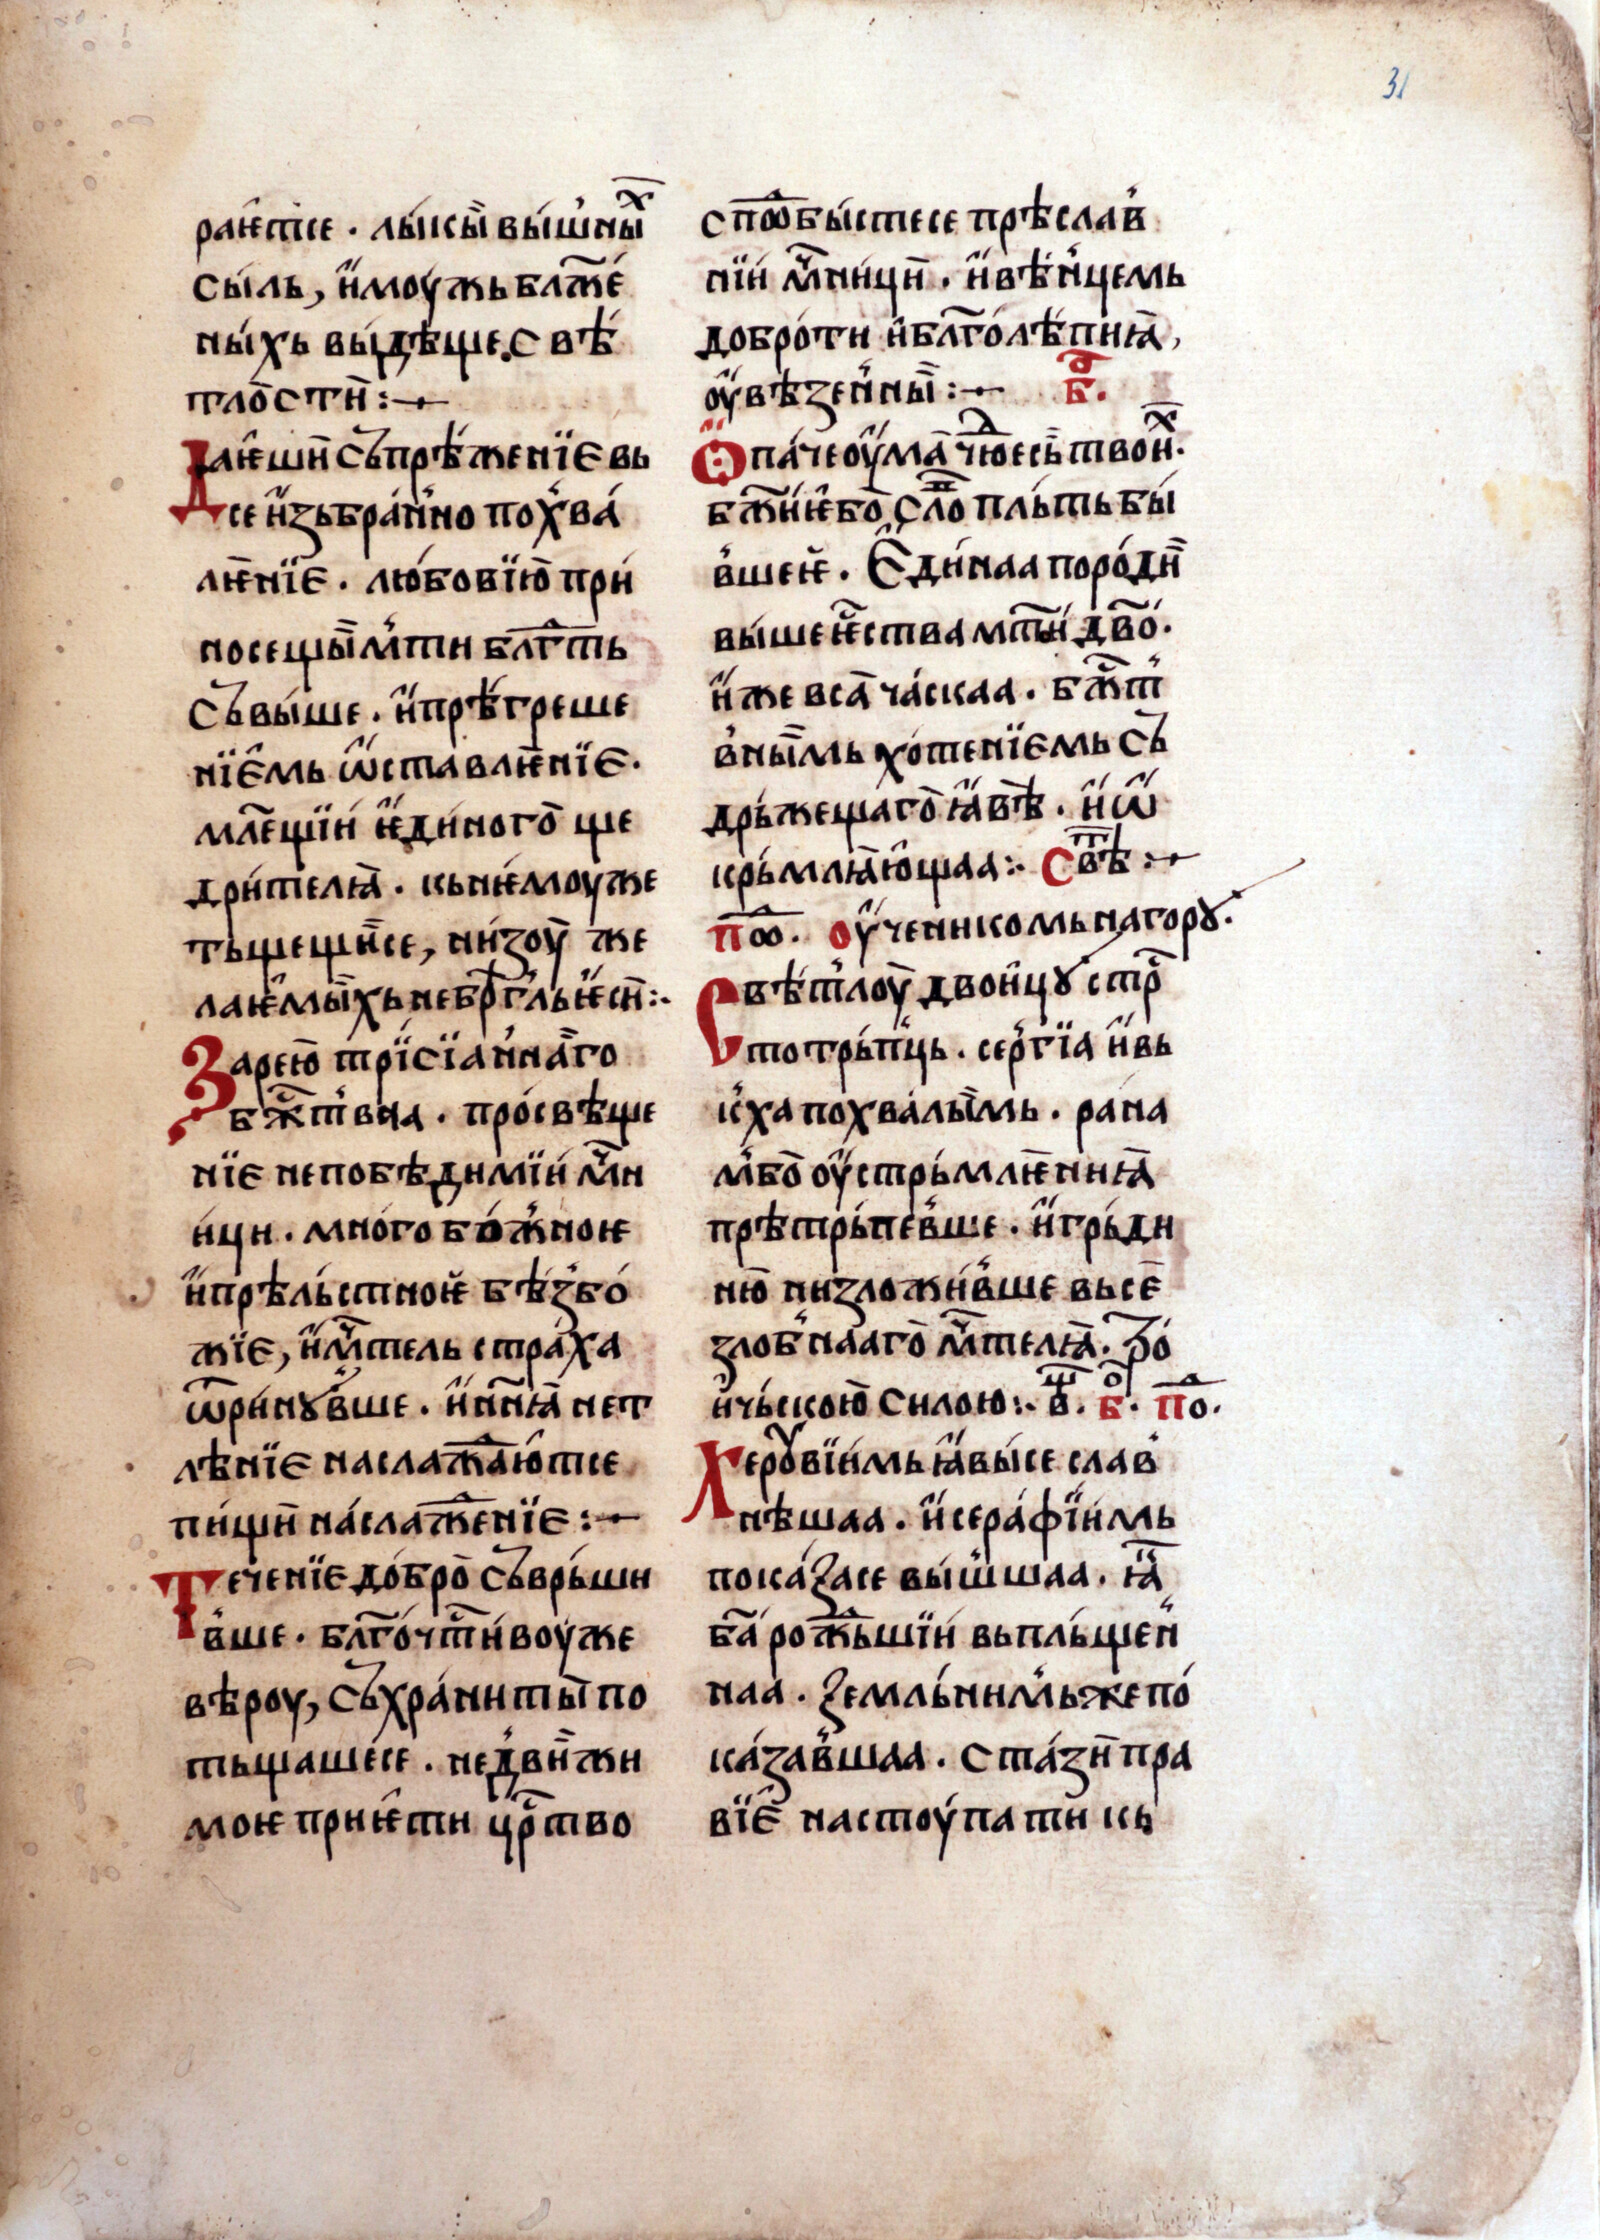 31
раѥ҆тсе · лы́кы̀ вы́шны̀х
сы́ль, и҆моу́жь бл҃же́
ны́хь вы́дѣще. свѣ́
тло̀сти̏ :⸺
Даѥ҆ши̏ съпрѣ́женїѐ вь
се и҆зьбра́н̾но пох̾ва́
лѥ̏нїѐ · лю́бовїю̏ при́
носещы̏м̾ ти бл҃гть
съвы́ше · и҆прѣ́греше
нїе҆мь ѿставлѥ̏нїѐ ·
мл҃ещїи́ ѥ҆ди́ного̏ ще
дри́телꙗ̏ · кьнѥ́моуже
тьщещи̏се, ни́зоу̏ же
лаѥ҆мы̏хь небрг҃ль ѥси̏ :·
Зарею̏ трїсїа́н̾на̏го
бж҃т̾вна · про́свѣще
нїѐ непобѣди́мїи́ м҃чн
и́ци · мно́гобо́ж̾ноѥ
и҆прѣльстноѥ̏ бѣ́з̾бо́
жїѐ, и҆м҃чтель стра́ха
ѿри́нꙋв̾ше · и҆нн҃ꙗ̏ нет
лѣнїѐ наслаж҃аю́тсе
пи́щи̏ на́слаж҃енїѐ :⸺
Те́ченїѐ до́бро̏ съврьши
в̾ше · бл҃гоч҃ти́воуже
вѣроу, съхра́ниты̏ по
тьщашесе · нед̾ви̏жи
моѥ прїѥ҆ти цр҃тво
спо҃обы́стесе прѣсла́в̾
нїи́ м҃чни́ци̏ · и҆вѣ́н̾цемь
добро́ти и҆бл҃го́лѣпиꙗ̏,
оу҆вѣзен̾ны̏ :⸺ б҃о.
Ѽ па́че оу҆ма̏ чю҃есь̏ твои̏х.
бж҃и́ѥбо̏ сло҃ пльть бы́
в̾шеѥ̏ · Е҆ди́наа поро́ди̏
вы́шеѥ҃ства мт҃и́ дв҃о́.
и҆же вса̏ ча́скаа · бж҃т
в̾ны̏мь хо́тенїѐмь съ
дрьжеща́го̏ ꙗ҆вѣ̏ · и҆ѿ
крьмлꙗ̏ю҆щаа :· свѣ҃т :⸺
по҃д. Оу҆ченикомь нагорꙋ.
Свѣ́т̾лоу̏ двои҆цꙋ стр҃
тотрьп̾ць · сер̾гїа и҆вь
к̾ха похва́лы̏мь · ра́на
м̾бо̏ оу҆стрьмлѥ̏ниꙗ̏
прѣтрьпев̾ше · и҆грьди
ню̏ низложи́в̾ше вьсе̏
злоб̾нааго̏ м҃чтелꙗ̏. Тро́
и́чьскою̏ силою :· в҃. б҃о. по҃д.
Херꙋви́мь ꙗ҆вы́се слав̾
нѣшаа · и҆сера́фи́мь
пока́засе вы́ш̾шаа · ꙗ҆
ба҃ рож҃ьшїи́ вьпльщен̾
наа · земльним̾ьже по́
ка́зав̾шаа · ста́зи̏ пра
вїѐ настоу́пати кь